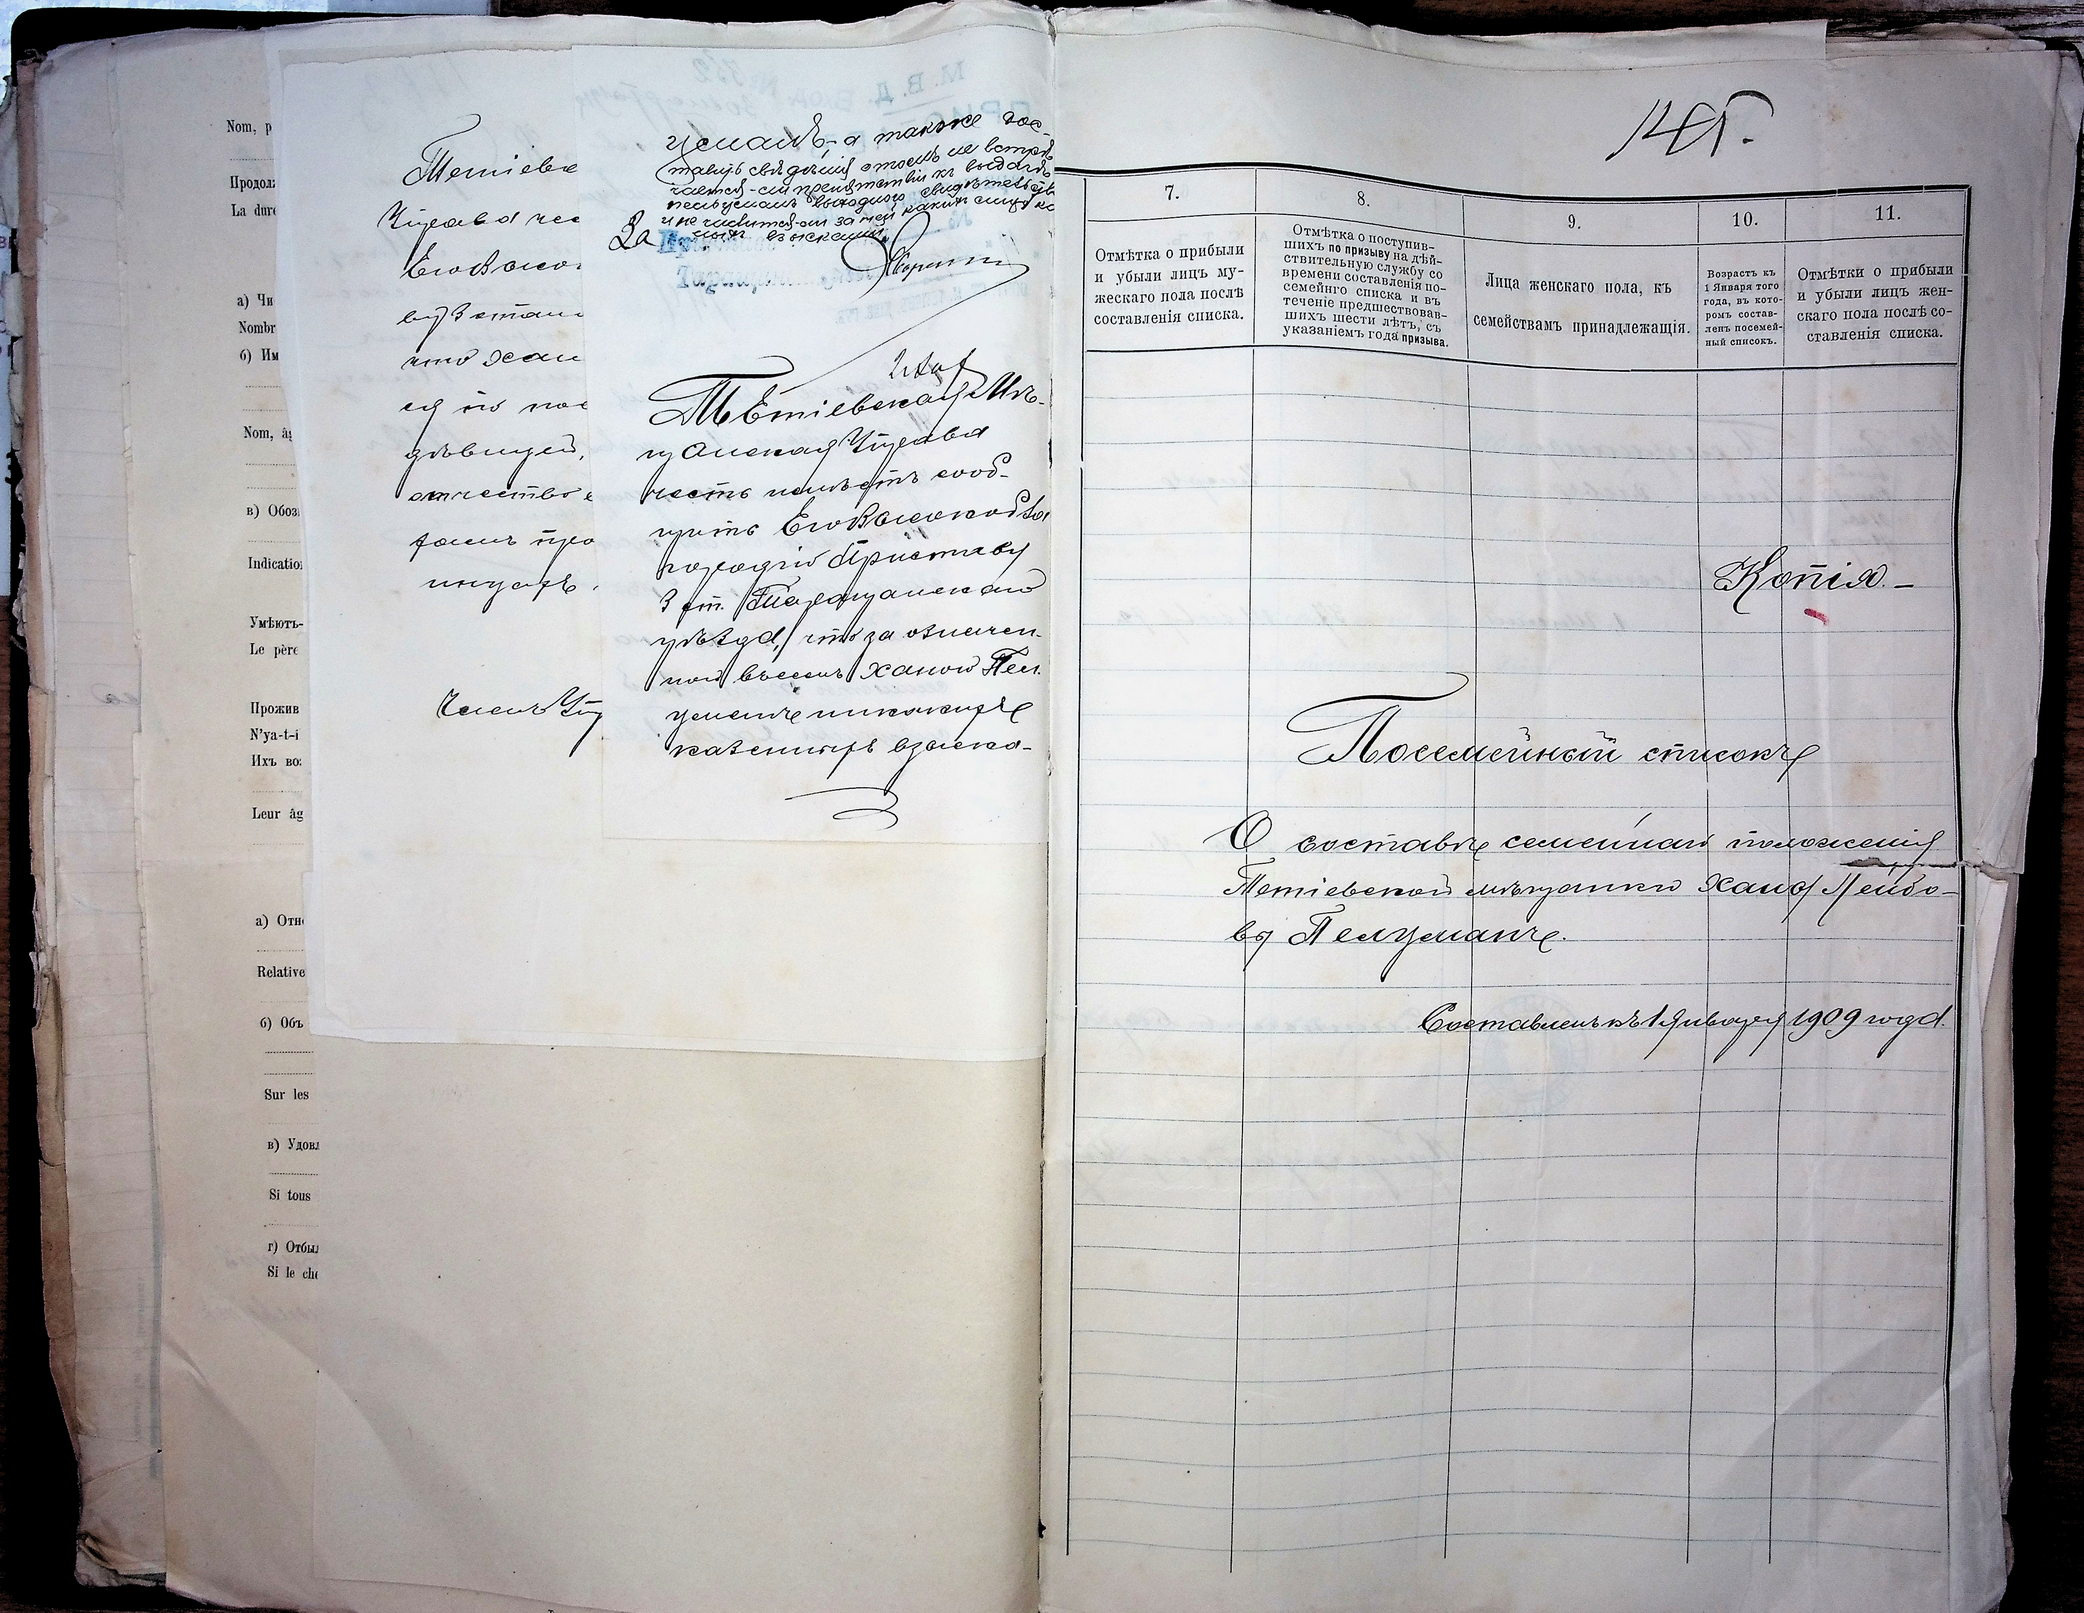 Nom, p
Продолж
La duré
а) Чи
Nombr
б) Им
Nom, âg
в) Обоз
Indication
Умѣютъ-
Le père
Прожив
N'ya-t-i
Ихъ воз
Leur âg
а) Отн
Relative
б) Объ
Sur les
в) Удовл
Si tous
г) Отбы
Si le che
Тетіевск
Управа чес
Его Высок
ву 3 стан
что Хан
ся по пос
дѣвицей,
отчество е
Членъ Уп
а также дос-
тавить свѣдѣнія о томъ не встрѣ-
чается-ли препятствій къ выдачѣ
выходного свидѣтельств
и не числится-ли за ней какихъ либо ка
взысканій.
За
Тетіевская Мѣ-
щанская Управа
честь имѣетъ сооб-
щить Его Высокобла
городію Приставу
3 ст. Таращанскаго
уѣзда, что за означен-
ной въ семъ Ханой Пел
уманъ никакихъ
казенныхъ взыска-
145.
7.
8.
9.
10.
11.
Отмѣтка о прибыли
и убыли лицъ му-
жескаго пола послѣ
составленія списка.
Отмѣтка о поступив-
шихъ по призыву на дѣй-
ствительную службу со
времени составленія по-
семейнго списка и въ
теченіе предшествовав-
шихъ шести лѣтъ, съ
указаніемъ года призыва.
Лица женскаго пола, къ
семействамъ принадлежащія.
Возрастъ къ
1 Января того
года, въ кото-
ромъ состав-
ленъ посемей-
ный списокъ.
Отмѣтки о прибыли
и убыли лицъ жен-
скаго пола послѣ со-
ставленія списка.
Копія.-
Посемейный списокъ
О составѣ семейнаго положенія
Тетіевской мѣщанки Ханы Лейбо-
вы Пелуманъ.
Составленъ къ 1 Января 1909 года.